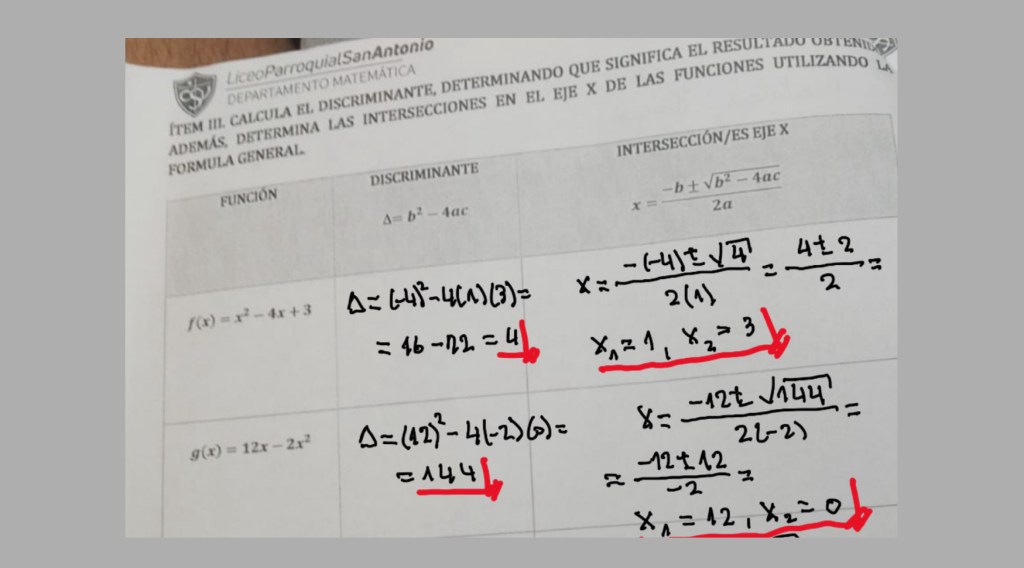 LiceoParroquialSanAntonio
DEPARTAMENTO MATEMÁTICA
ÍTEM III. CALCULA EL DISCRIMINANTE, DETERMINANDO QUE SIGNIFICA EL RESULTADO
ADEMÁS, DETERMINA LAS INTERSECCIONES EN EL EJE X DE LAS FUNCIONES UTILIZANDO LA
FORMULA GENERAL.
FUNCIÓN
DISCRIMINANTE
Δ= b² − 4ac
INTERSECCIÓN/ES EJE X
x = (−b ± √(b² − 4ac))/(2a)
f(x) = x² − 4x + 3
Δ = (-4)² - 4(1)(3) =
= 16 - 12 = 4
x = (-(-4) ± √4)/(2(1)) = (4 ± 2)/2 =
x₁ = 1, x₂ = 3
g(x) = 12x − 2x²
Δ = (12)² - 4(-2)(0) =
= 144
x = (-12 ± √144)/(2(-2)) =
= (-12 ± 12)/(-2) =
x₁ = 12, x₂ = 0